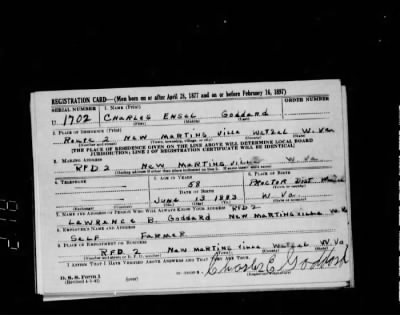 REGISTRATION CARD—(Men born on or after April 28, 1877 and on or before February 16, 1897)
SERIAL NUMBER 1. NAME (Print) ORDER NUMBER
U 1702 CHARLES ENSEL GODDARD
(First) (Middle) (Last)
2. PLACE OF RESIDENCE (Print)
Route 2 NEW MARTINSVILLE WETZEL W. Va
(Number and street) (Town, township, village, or city) (County) (State)
[THE PLACE OF RESIDENCE GIVEN ON THE LINE ABOVE WILL DETERMINE LOCAL BOARD
JURISDICTION; LINE 2 OF REGISTRATION CERTIFICATE WILL BE IDENTICAL]
3. MAILING ADDRESS
RFD 2 NEW MARTINSVILLE W. Va
[Mailing address if other than place indicated on line 2. If same insert word same]
4. TELEPHONE 5. AGE IN YEARS 6. PLACE OF BIRTH
58 PROCTOR DIST
DATE OF BIRTH (Town or county)
JUNE 13 1883 W. VA.
(Exchange) (Number) (Mo.) (Day) (Yr.) (State or country)
7. NAME AND ADDRESS OF PERSON WHO WILL ALWAYS KNOW YOUR ADDRESS RFD 2
LAWRENCE B. GODDARD NEW MARTINSVILLE W. Va
8. EMPLOYER'S NAME AND ADDRESS
SELF FARMER
9. PLACE OF EMPLOYMENT OR BUSINESS
RFD 2 NEW MARTINSVILLE WETZEL W. Va
(Number and street or R. F. D. number) (Town) (County) (State)
I AFFIRM THAT I HAVE VERIFIED ABOVE ANSWERS AND THAT THEY ARE TRUE.
D. S. S. Form 1
(Revised 4-1-42) (over) Charles E. Goddard
(Registrant's signature)